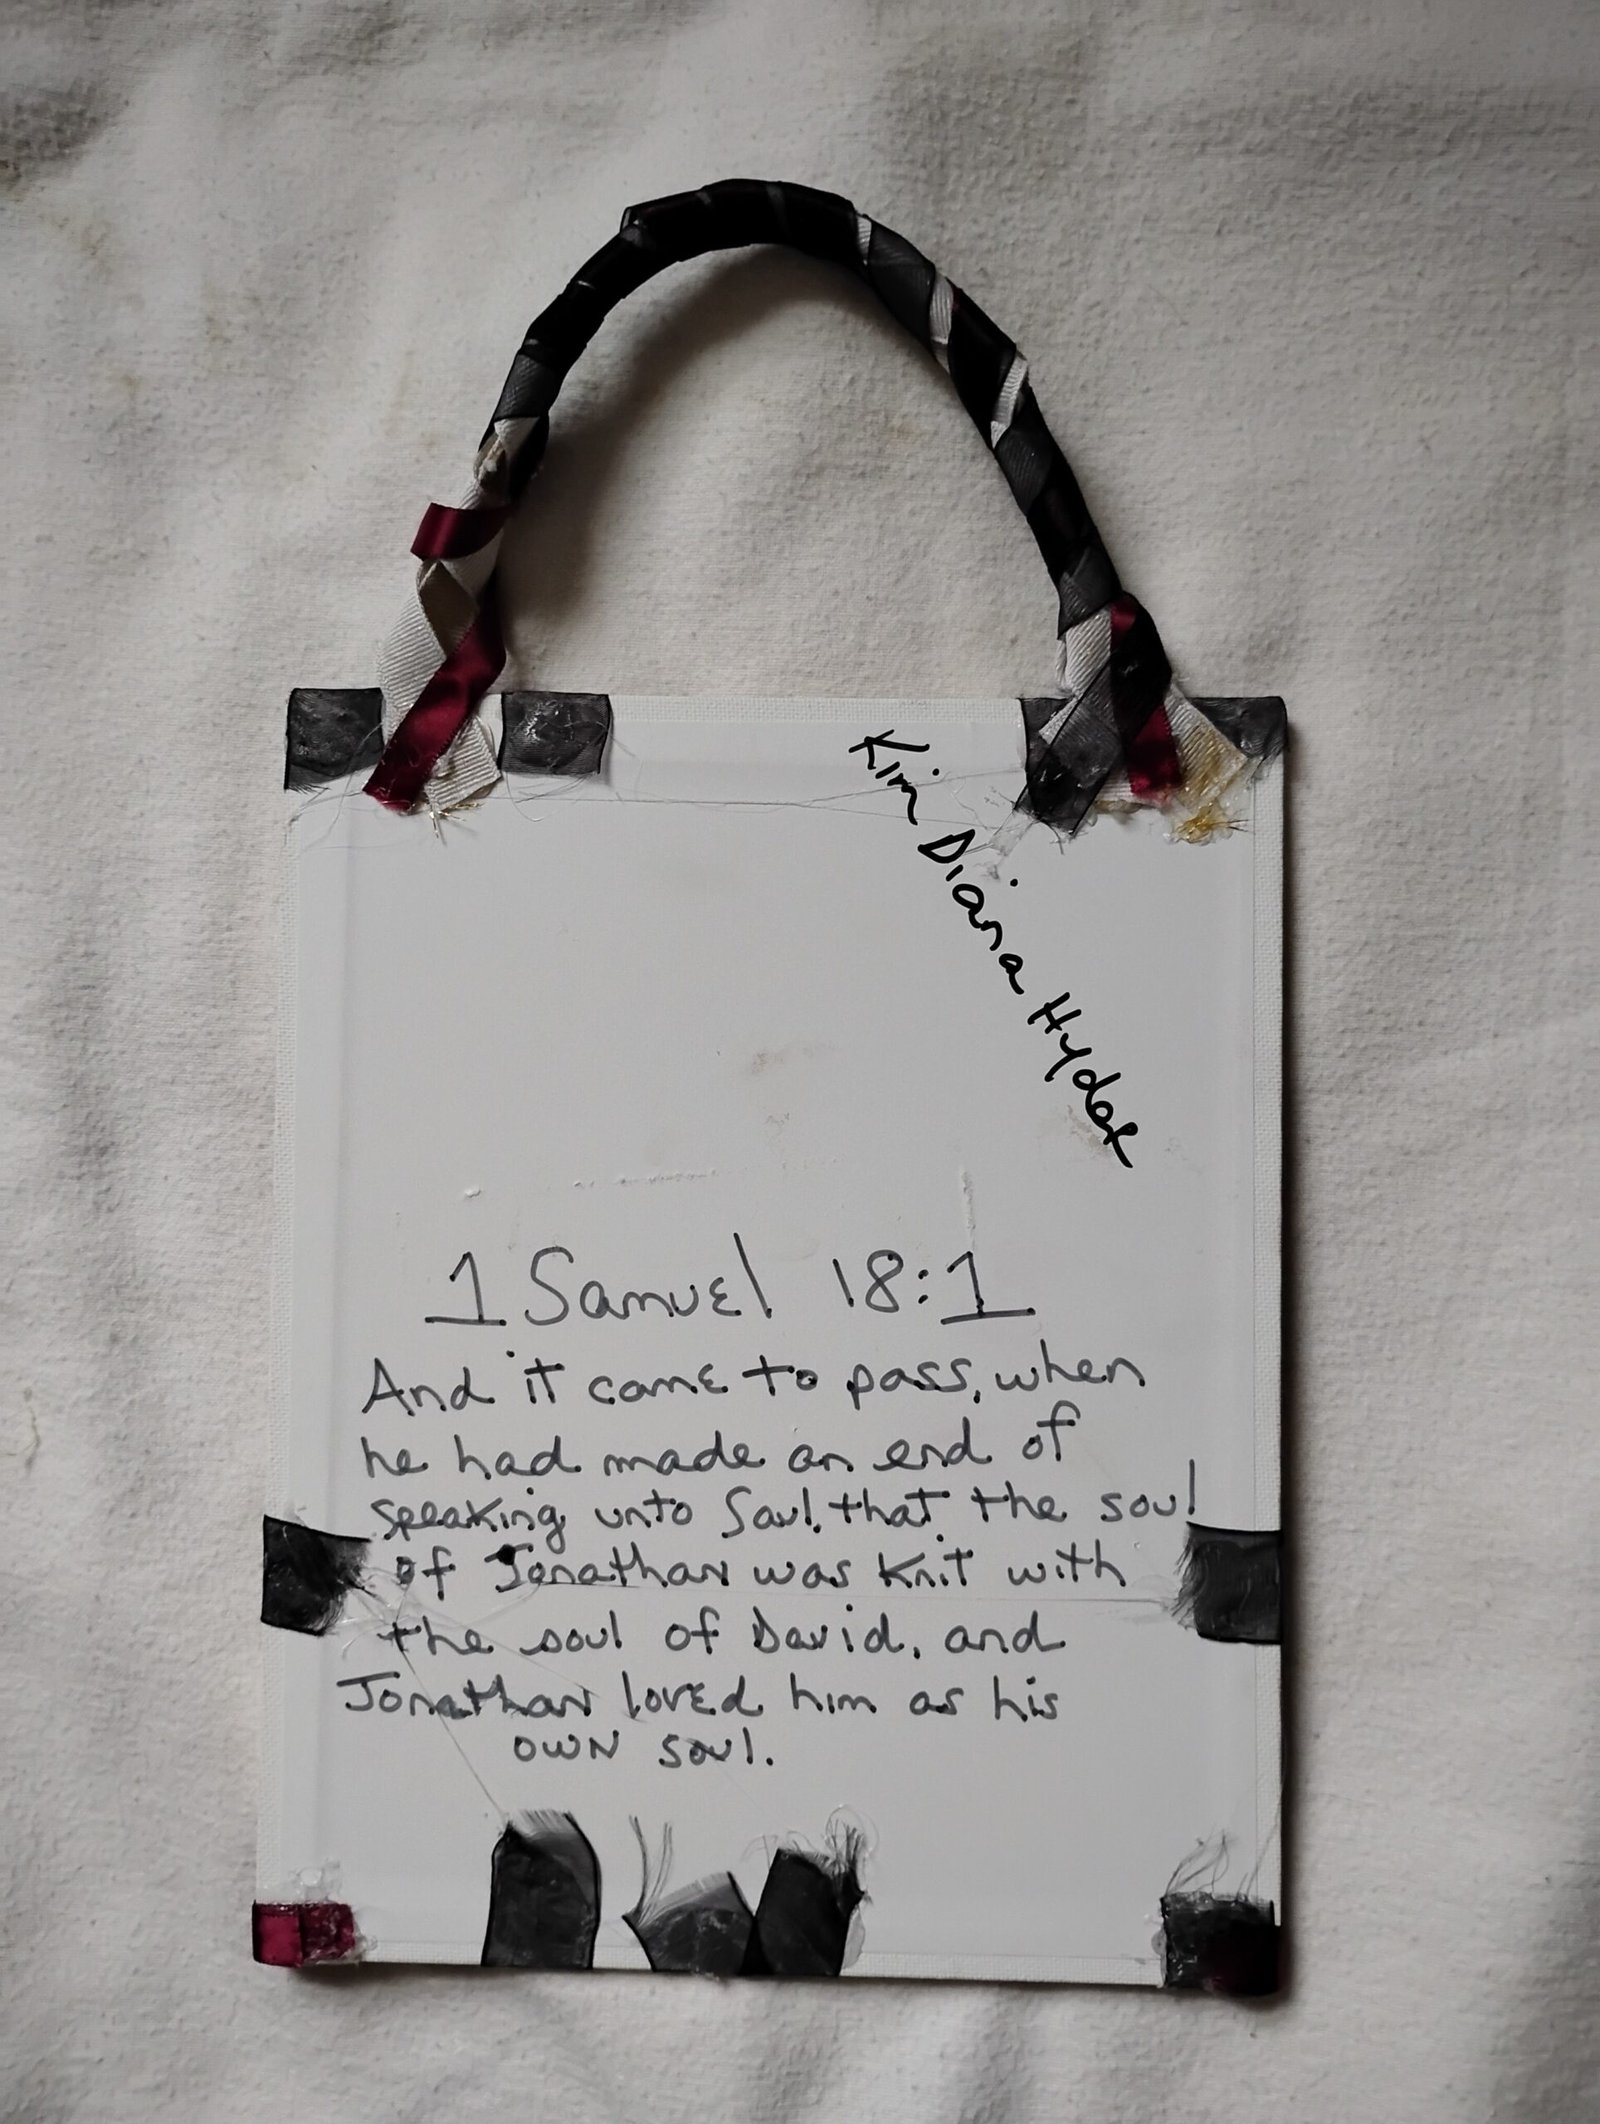 Kim Diana Hyder
1 Samuel 18:1
And it came to pass, when
he had made an end of
speaking unto Saul, that the soul
of Jonathan was knit with
the soul of David, and
Jonathan loved him as his
own soul.